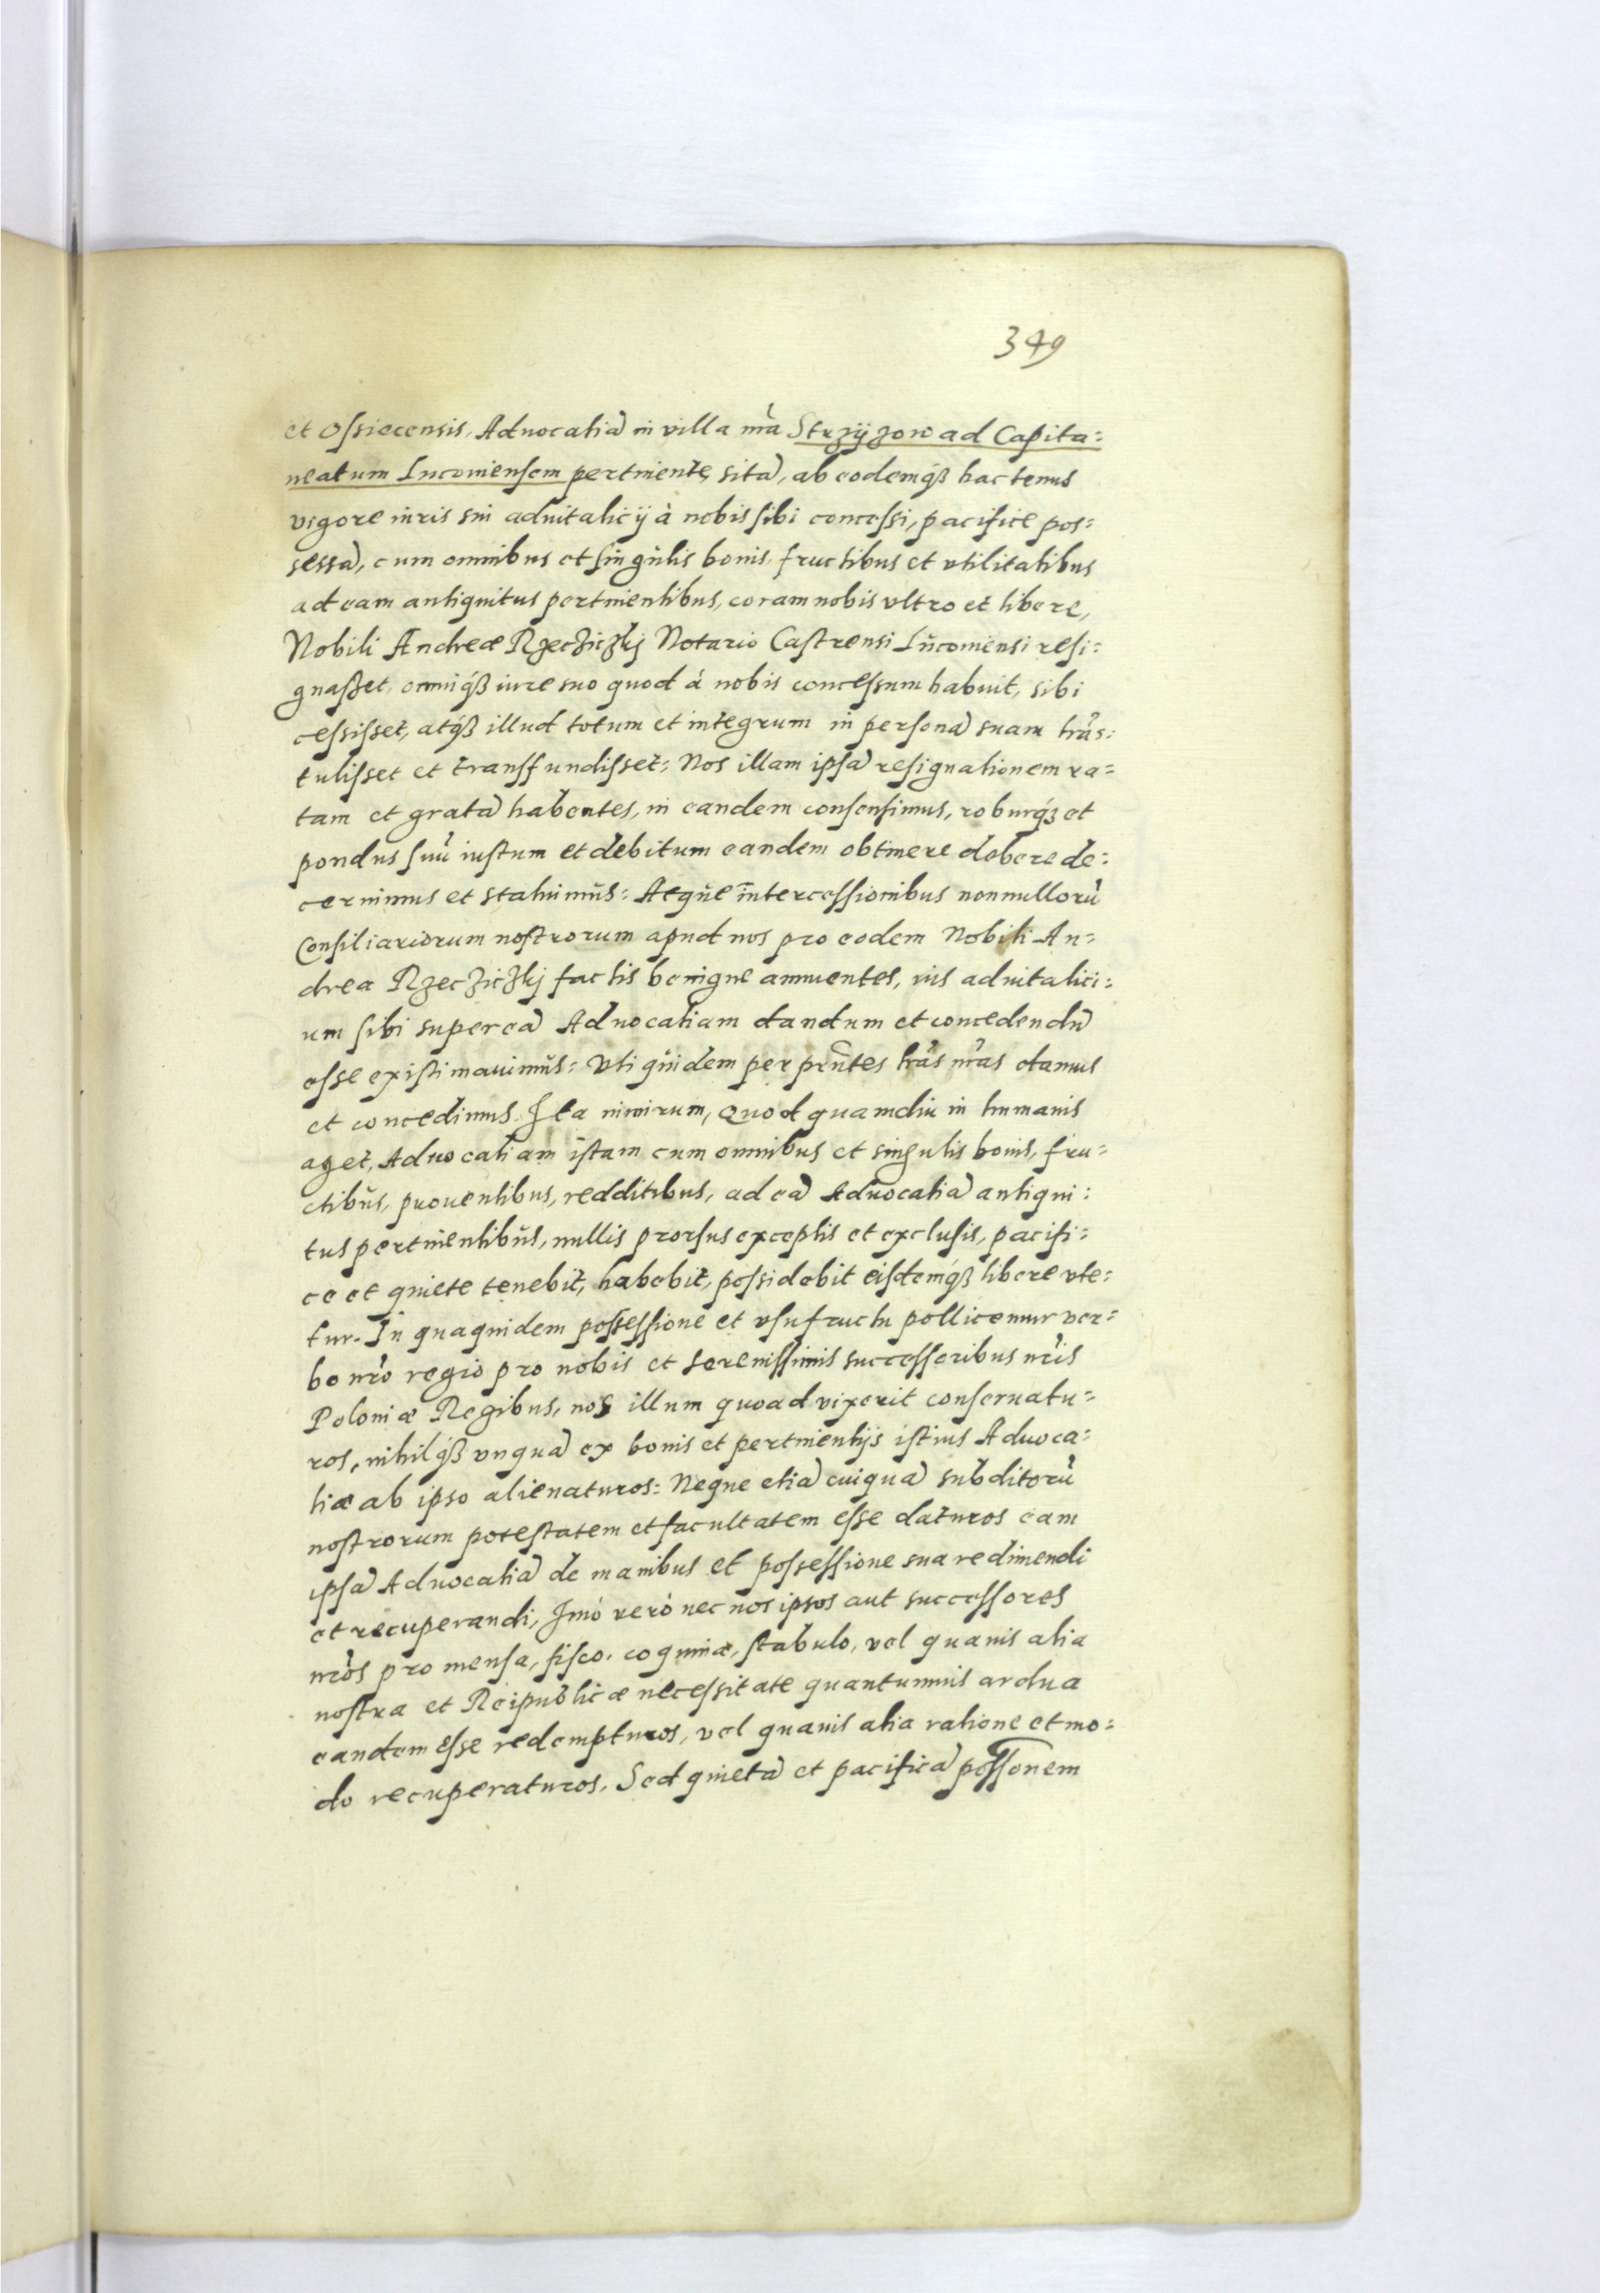 349
et Ossiecensis, Aduocatiã in villa nrã Strzÿzow ad Capita=
neatum Lucouiensem pertinente, sitã, ab eodemq́ß hactenus
vigore iuris sui aduitalicÿ à nobis sibi concessi, pacifice pos=
sessã, cum omnibus et singulis bonis, fructibus et vtilitatibus
ad eam antiquitus pertinentibus, coram nobis vltro et libere,
Nobili Andreæ Rzecziczkj Notario Castrensi Lucouiensi resi=
gnasset, omniq́ß iure suo quod à nobis concessum habuit, sibi
cessisset, atq́ß illud totum et integrum in personã suam trãs=
tulisset et transffundisset: Nos illam ipsã resignationem ra=
tam et gratã habentes, in eandem consensimus, roburq́ʒ et
pondus suũ iustum et debitum eandem obtinere debere de=
cernimus et statuimus: Aeque intercessionibus nonnullorũ
Consiliariorum nostrorum apud nos pro eodem Nobili An=
drea Rzecziczkj factis benigne annuentes, ius aduitalici=
um sibi super eã Aduocatiam dandum et concedendũ
esse existimauimus: Vti quidem per pñtes lrãs nrãs damus
et concedimus. Ita nimirum, Quod quamdiu in humanis
aget, Aduocatiam istam cum omnibus et singulis bonis, fru=
ctibus, prouentibus, redditibus, ad eã Aduocatiã antiqui=
tus pertinentibus, nullis prorsus exceptis et exclusis, pacifi=
ce et quiete tenebit, habebit, possidebit eisdemq́ß libere vte=
tur. In quaquidem possessione et vsufructu pollicemur ver=
bo nrõ regio pro nobis et serenissimis successoribus nrĩs
Poloniæ Regibus, nos illum quoad vixerit conseruatu=
ros, nihilq́ß vnquã ex bonis et pertinentijs istius Aduoca=
tiæ ab ipso alienaturos: Neque etiã cuiquã subditorũ
nostrorum potestatem et facultatem esse daturos eam
ipsã Aduocatiã de manibus et possessione sua redimendi
et recuperandi, Imò verò nec nos ipsos aut successores
nrõs pro mensa, fisco, coquina, stabulo, vel quauis alia
nostra et Reipublicæ necessitate quantumuis ardua
eandem esse redempturos, vel quauis alia ratione et mo=
do recuperaturos. Sed quietã et pacificã possonem